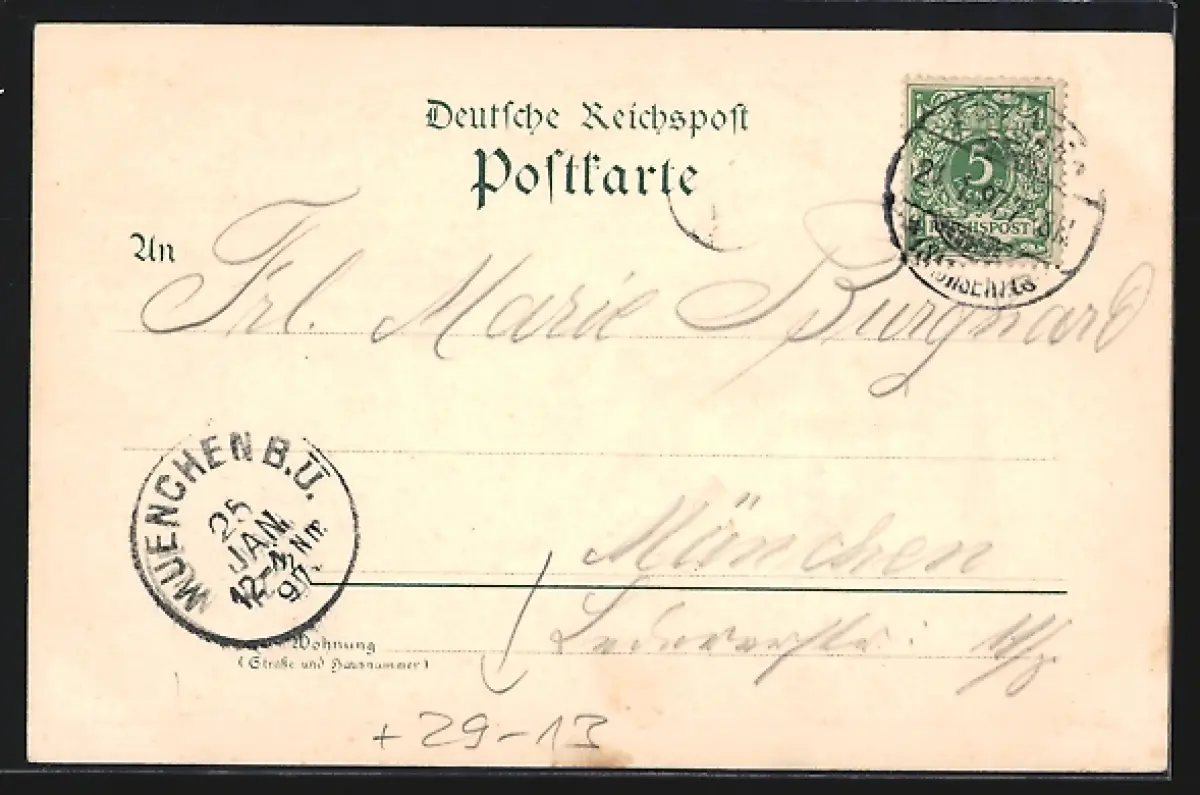 Deutsche Reichspost
Postkarte
5
REICHSPOST
An
Frl. Marie Burghard
MUENCHEN B.Ü.
25
JAN.
97.
München
Wohnung
(Straße und Hausnummer)
+29-13